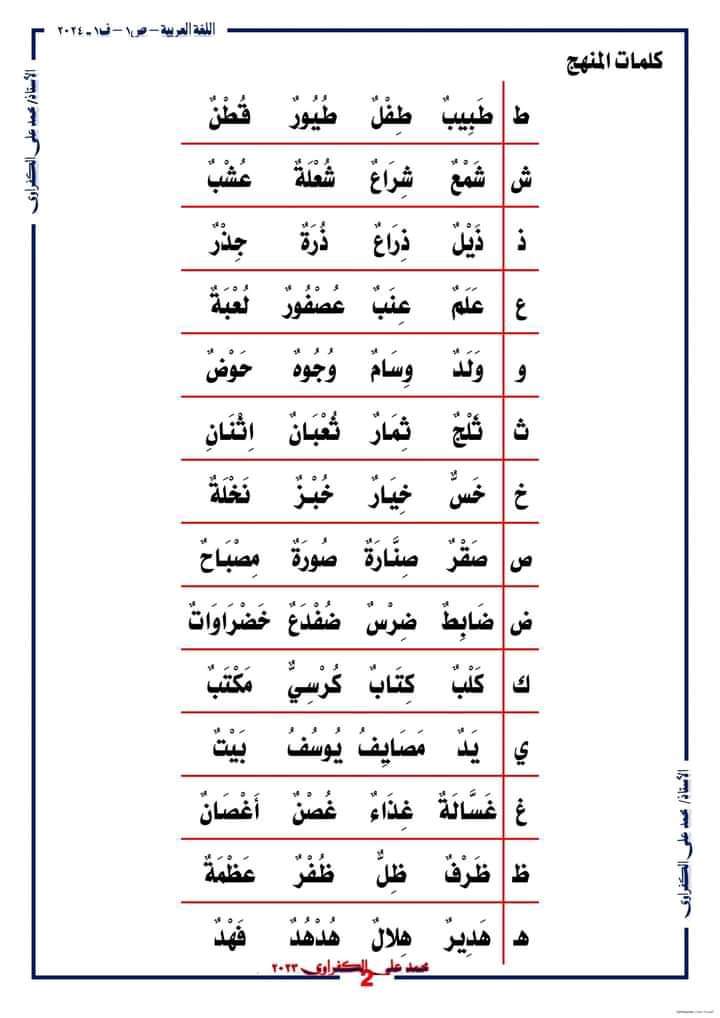 اللغة العربية – ص١ – ف١ ـ ٢٠٢٤
كلمات المنهج
الأستاذ/ محمد على الكفراوى
ط طَبِيبٌ طِفْلٌ طُيُورٌ قُطْنٌ
ش شَمْعٌ شِرَاعٌ شُعْلَةٌ عُشْبٌ
ذ ذَيْلٌ ذِرَاعٌ ذُرَةٌ جِذْرٌ
ع عَلَمٌ عِنَبٌ عُصْفُورٌ لُعْبَةٌ
و وَلَدٌ وِسَامٌ وُجُوهٌ حَوْضٌ
ث ثَلْجٌ ثِمَارٌ ثُعْبَانٌ اِثْنَانِ
خ خَسٌّ خِيَارٌ خُبْزٌ نَخْلَةٌ
ص صَقْرٌ صِنَّارَةٌ صُورَةٌ مِصْبَاحٌ
ض ضَابِطٌ ضِرْسٌ ضُفْدَعٌ خَضْرَاوَاتٌ
ك كَلْبٌ كِتَابٌ كُرْسِيٌّ مَكْتَبٌ
ي يَدٌ مَصَايِفُ يُوسُفُ بَيْتٌ
غ غَسَّالَةٌ غِذَاءٌ غُصْنٌ أَغْصَانٌ
ظ ظَرْفٌ ظِلٌّ ظُفْرٌ عَظْمَةٌ
هـ هَدِيرٌ هِلالٌ هُدْهُدٌ فَهْدٌ
الأستاذ/ محمد على الكفراوى
محمد على الكفراوى ٢٠٢٣
2